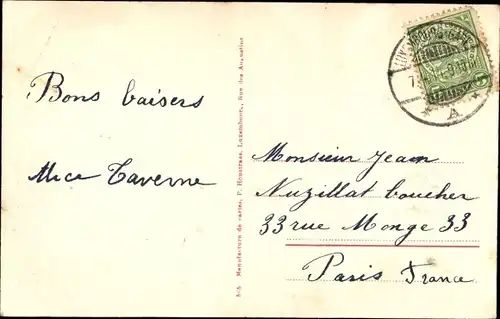 Bons baisers
Alice Taverne
N:5 Manufacture de cartes, P. Houstraas, Luxembourg, Rue des Augustins
LUXEMBOURG-GARE
A
5
Monsieur Jean
Nuzillat boucher
33 rue Monge 33
Paris France